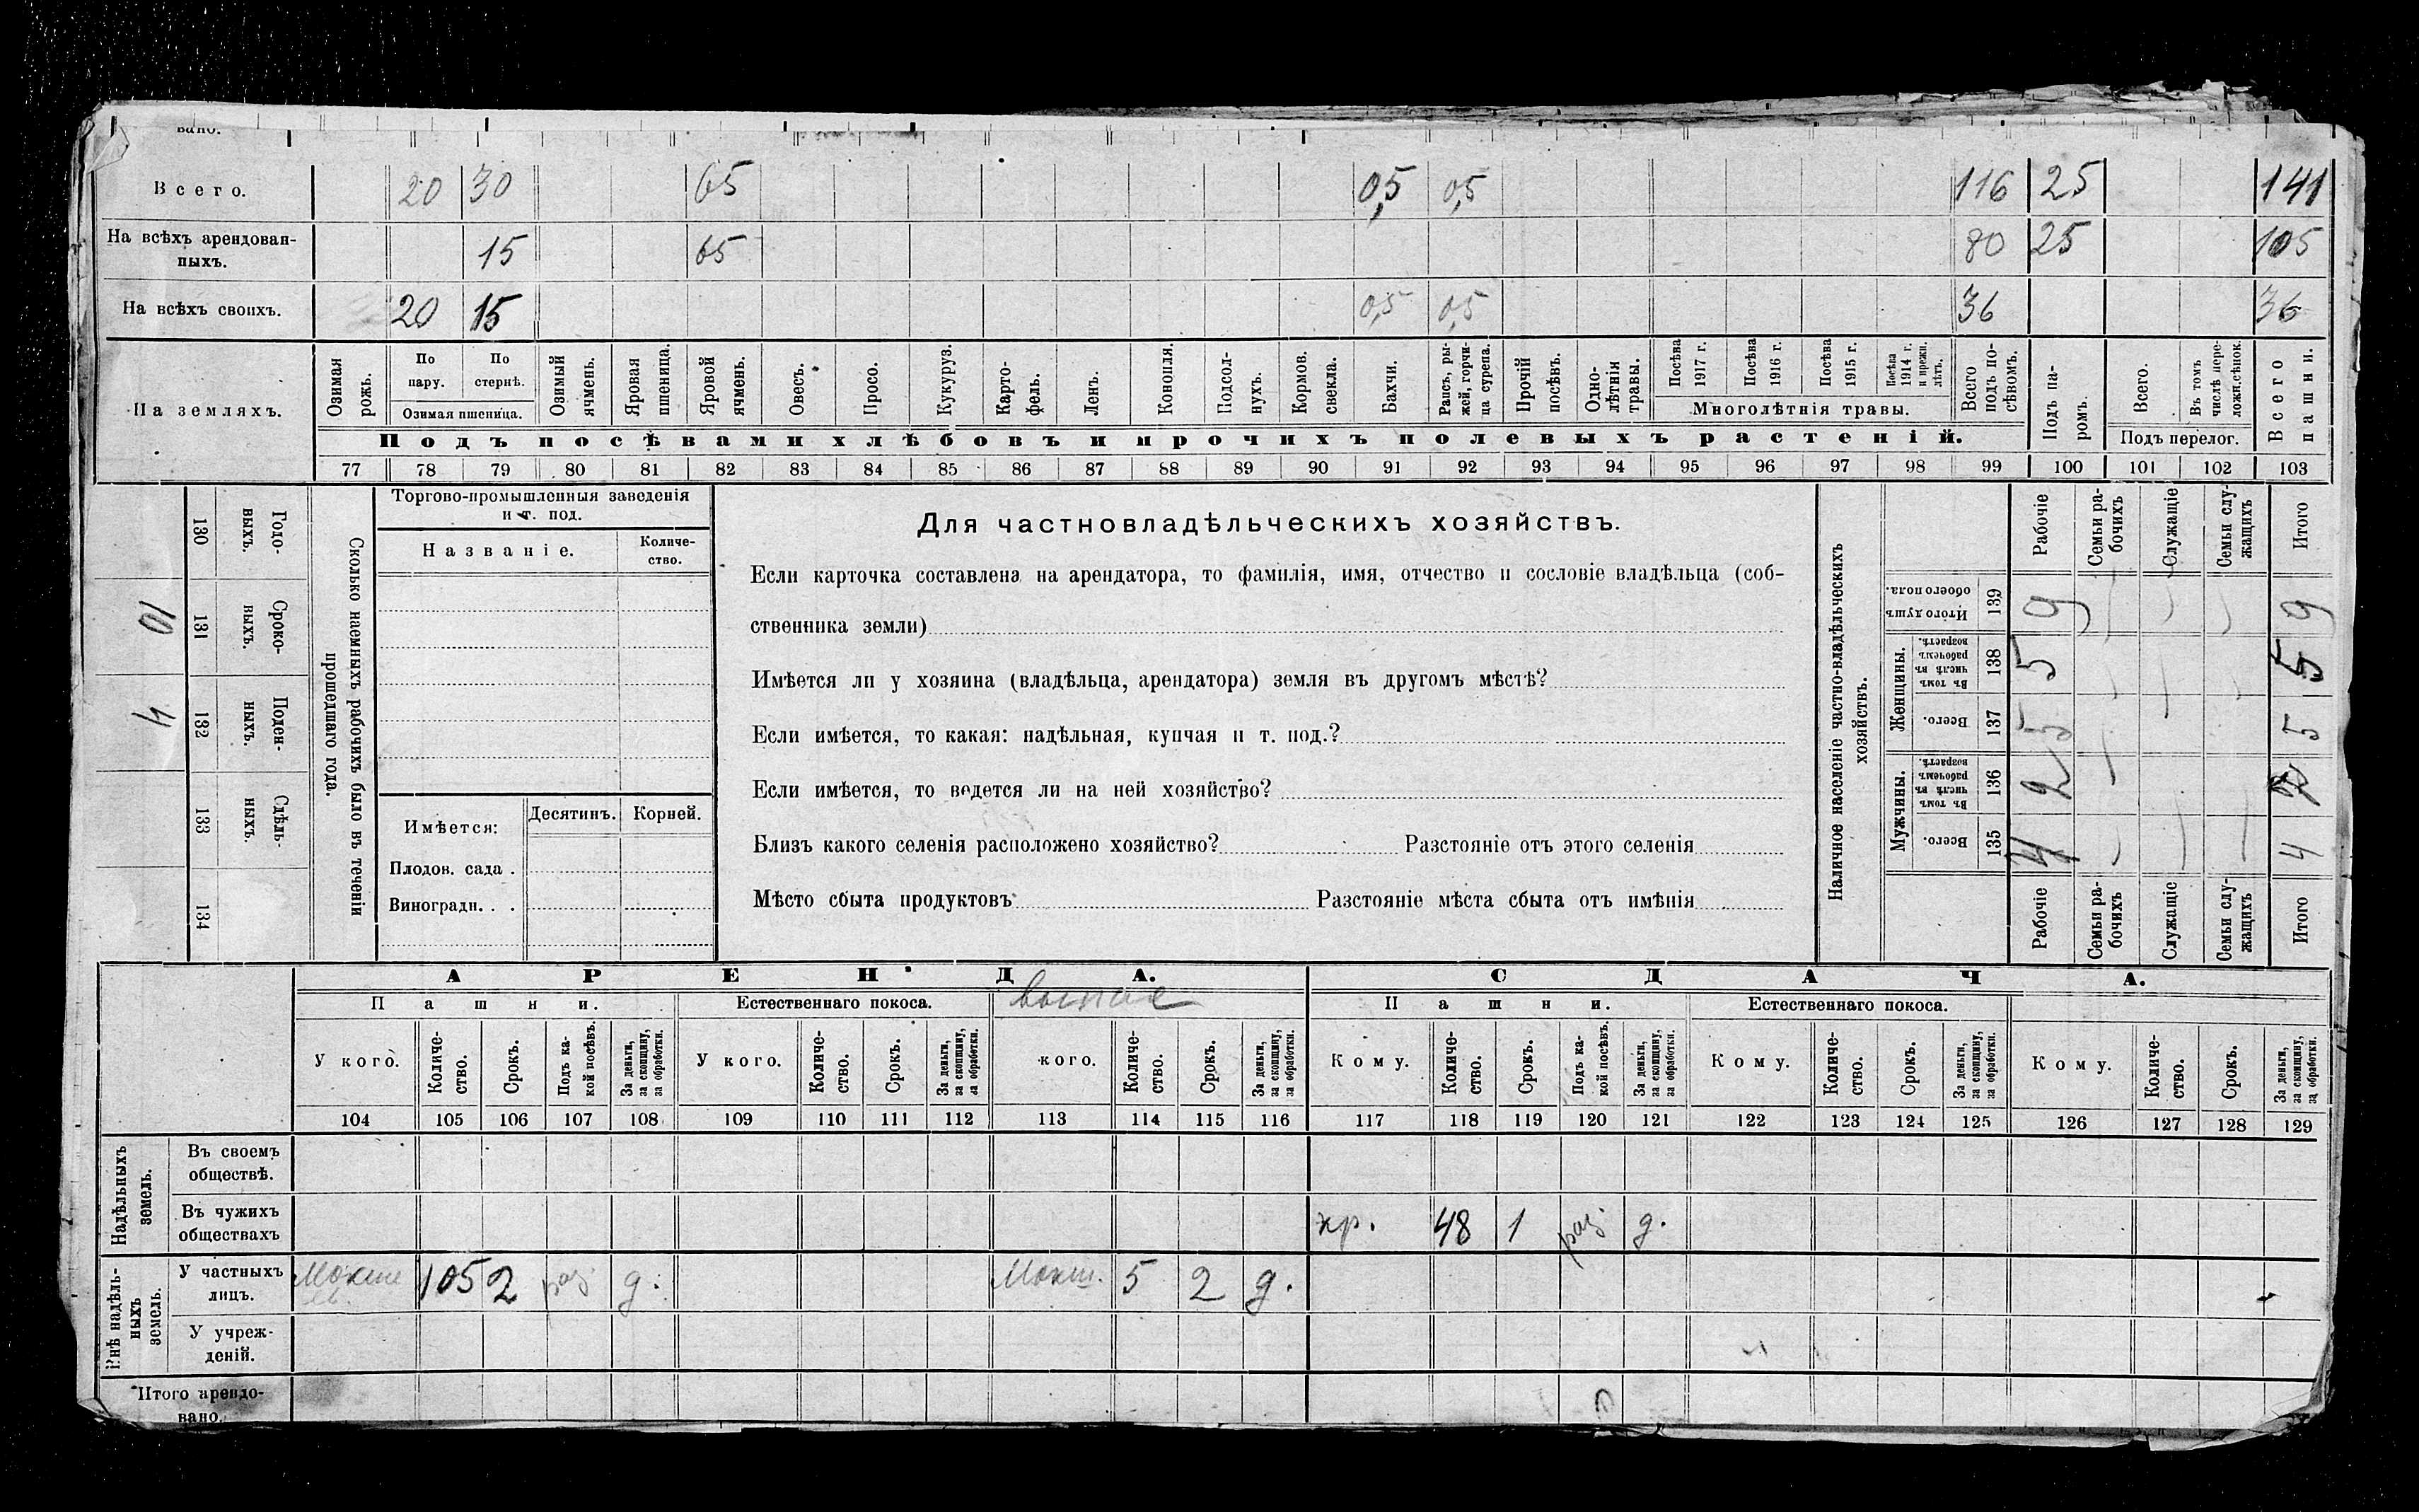 вано.
Всего. 20 30 65 0,5 0,5 116 25 141
На всѣхъ арендован-
ныхъ. 15 65 80 25 105
На всѣхъ своихъ. 20 15 0,5 0,5 36 36
На земляхъ.
Озимая рожь.
По пару.
По стернѣ.
Озимая пшеница.
Озимый ячмень.
Яровая пшеница.
Яровой ячмень.
Овесъ.
Просо.
Кукуруз.
Карто-
фель.
Ленъ.
Конопля.
Подсол-
нухъ.
Кормов. свекла.
Бахчи.
Рапсъ, ры-
жей, горчи-
ца сурепа.
Прочій посѣвъ.
Одно-
лѣтнія травы.
Посѣва 1917 г.
Посѣва 1916 г.
Посѣва 1915 г.
Посѣва 1914 г. и прежн. лѣтъ.
Многолѣтнія травы.
Всего подъ по-
сѣвомъ.
Подъ па-
ромъ.
Всего.
Въ томъ числѣ пере-
лож.сѣнок.
Подъ перелог.
Всего пашни.
Подъ посѣвами хлѣбовъ и прочихъ полевыхъ растеній.
77 78 79 80 81 82 83 84 85 86 87 88 89 90 91 92 93 94 95 96 97 98 99 100 101 102 103
Сколько наемныхъ рабочихъ было въ теченіи
прошедшаго года.
Годо-
выхъ. 130
Сроко-
выхъ. 131 10
Поден-
ныхъ. 132 4
Сдѣль-
ныхъ. 133
134
Торгово-промышленныя заведенія
и т. под.
Названіе.
Количе-
ство.
Имѣется:
Десятинъ. Корней.
Плодов. сада .
Виноградн. . .
Для частновладѣльческихъ хозяйствъ.
Если карточка составлена на арендатора, то фамилія, имя, отчество и сословіе владѣльца (соб-
ственника земли)
Имѣется ли у хозяина (владѣльца, арендатора) земля въ другомъ мѣстѣ?
Если имѣется, то какая: надѣльная, купчая и т. под.?
Если имѣется, то ведется ли на ней хозяйство?
Близъ какого селенія расположено хозяйство? Разстояніе отъ этого селенія
Мѣсто сбыта продуктовъ Разстояніе мѣста сбыта отъ имѣнія
Наличное населеніе частно-владѣльческихъ
хозяйствъ.
Рабочіе
Семьи ра-
бочихъ
Служащіе
Семьи слу-
жащихъ
Итого
Итого душъ обоего пола. 139 9 9
Женщины.
Въ томъ числѣ въ рабочемъ возрастѣ. 138 5 5
Всего. 137 5 5
Мужчины.
Въ томъ числѣ въ рабочемъ возрастѣ. 136 2 2
Всего. 135 4 4
Рабочіе
Семьи ра-
бочихъ
Служащіе
Семьи слу-
жащихъ
Итого
АРЕНДА. СДАЧА.
Пашни. Естественнаго покоса. Пашни. Естественнаго покоса.
У кого. Количе-
ство. Срокъ. Подъ ка-
кой посѣвъ. За деньги, за скопщину, за обработки.
У кого. Количе-
ство. Срокъ. За деньги, за скопщину, за обработки.
кого. Количе-
ство. Срокъ. За деньги, за скопщину, за обработки.
Кому. Количе-
ство. Срокъ. Подъ ка-
кой посѣвъ. За деньги, за скопщину, за обработки.
Кому. Количе-
ство. Срокъ. За деньги, за скопщину, за обработки.
Кому. Количе-
ство. Срокъ. За деньги, за скопщину, за обработки.
104 105 106 107 108 109 110 111 112 113 114 115 116 117 118 119 120 121 122 123 124 125 126 127 128 129
Надѣльныхъ
земель.
Въ своемъ
обществѣ.
Въ чужихъ
обществахъ кр. 48 1 раз. д.
Внѣ надѣль-
ныхъ
земель.
У частныхъ
лицъ. 105 2 раз. д. Мокш. 5 2 д.
У учреж-
деній.
Итого арендо-
вано.